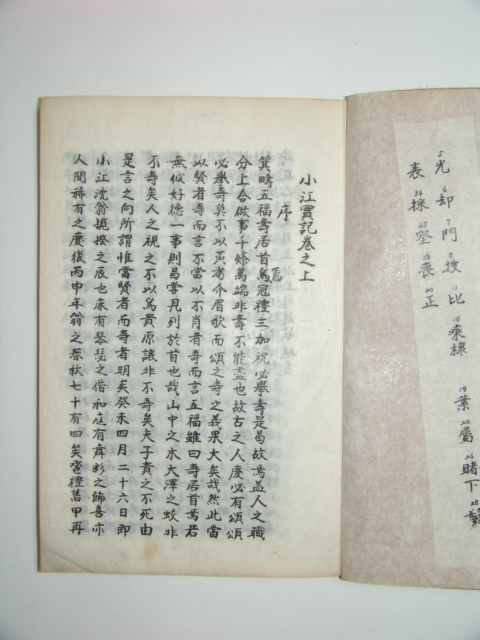 光 却 門 披 比 痰 棣 葉 屬 睹 下
喪 探 堅 喪 正
5 6 7 8 11 18 19 22 26 28
34 22 38 40
小江實記卷之上
序
箕疇五福壽居首焉冠禮三加祝必擧壽是曷故焉盖人之職
分上合做事千條萬端非壽不能盡也故古之人慶必有頌頌
必擧壽莫不以黃耇介眉歌而頌之壽之義果大矣哉然此當
以賢者壽而言不當以不肖者壽而言五福雖曰壽居首焉若
無攸好德一事則曷當見列於首也哉山中之木大澤之蛟非
不壽矣人之視之不以爲貴原讓非不壽矣夫子責之不死由
是言之向所謂惟當賢者而壽者明矣癸未四月二十六日卽
小江沈翁攬揆之辰也床有琴瑟之偕和庭有舞彩之飾喜亦
人間稀有之慶後丙申年翁之春秋七十有四矣卺禮舊甲再